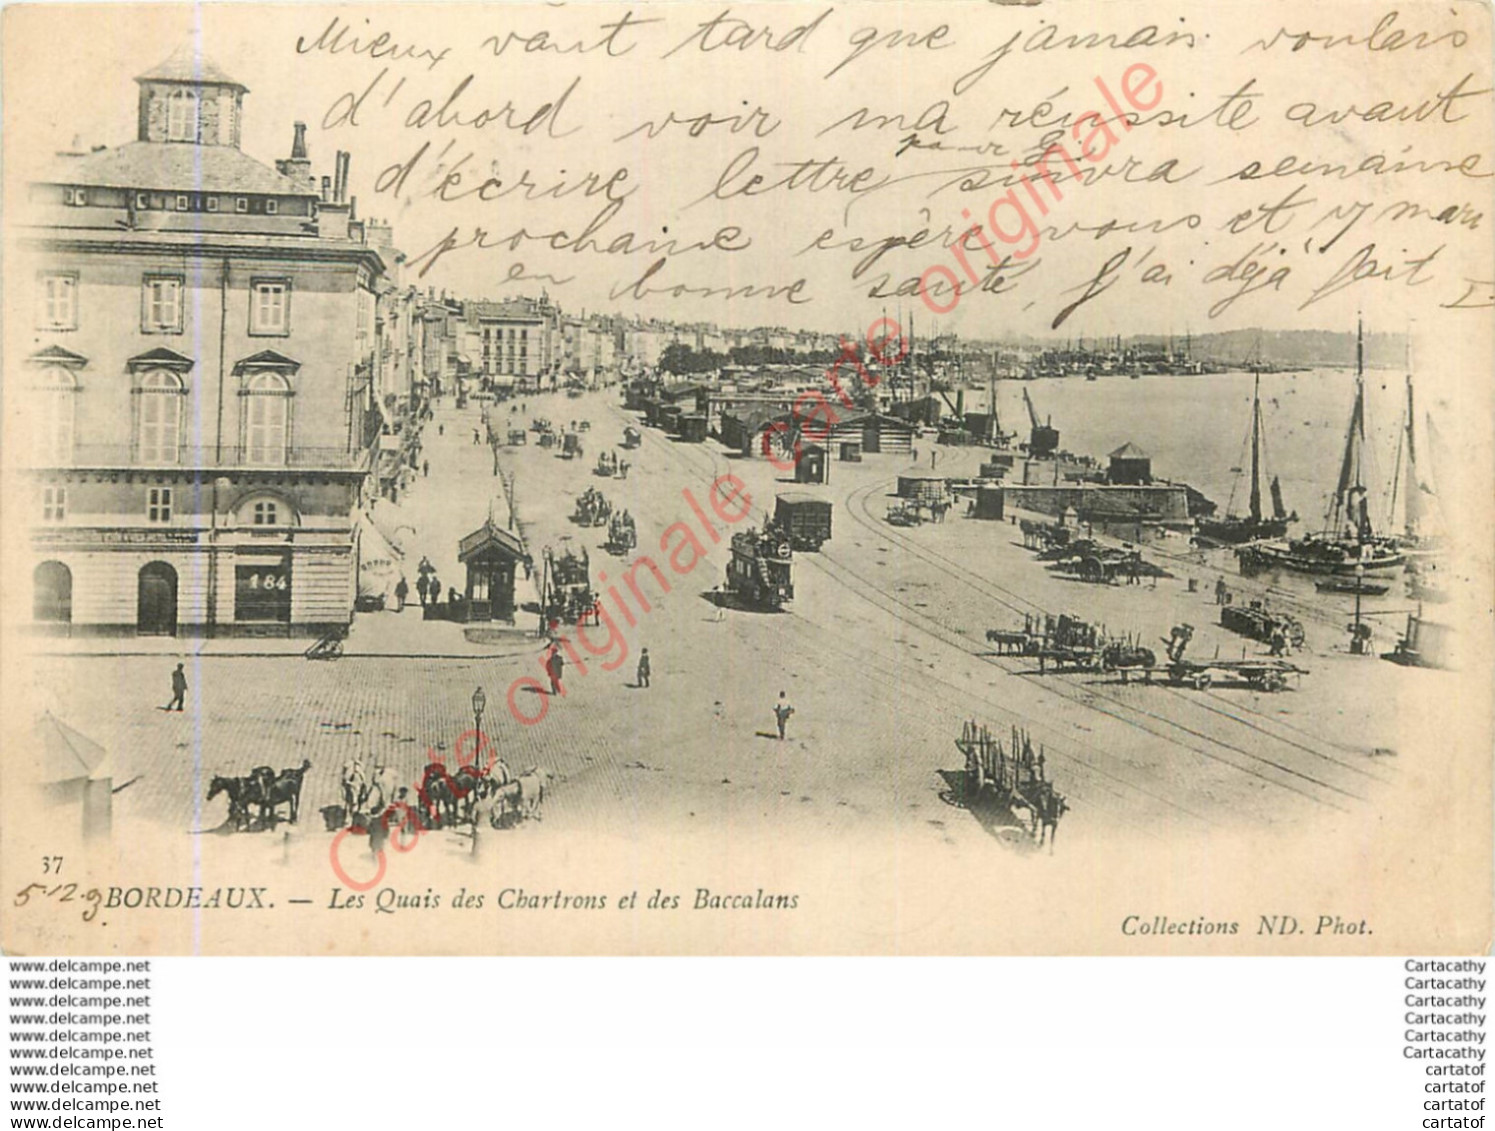 Mieux vaut tard que jamais voulais
d'abord voir ma réussite avant
pour G.
d'écrire lettre suivra semaine
prochaine espère vous et
en bonne santé, j'ai déjà fait
184
37
5.12.
BORDEAUX. — Les Quais des Chartrons et des Baccalans
Collections ND. Phot.
Carte originale carte originale carte originale
www.delcampe.net Cartacathy
www.delcampe.net Cartacathy
www.delcampe.net Cartacathy
www.delcampe.net Cartacathy
www.delcampe.net Cartacathy
www.delcampe.net Cartacathy
www.delcampe.net cartatof
www.delcampe.net cartatof
www.delcampe.net cartatof
www.delcampe.net cartatof